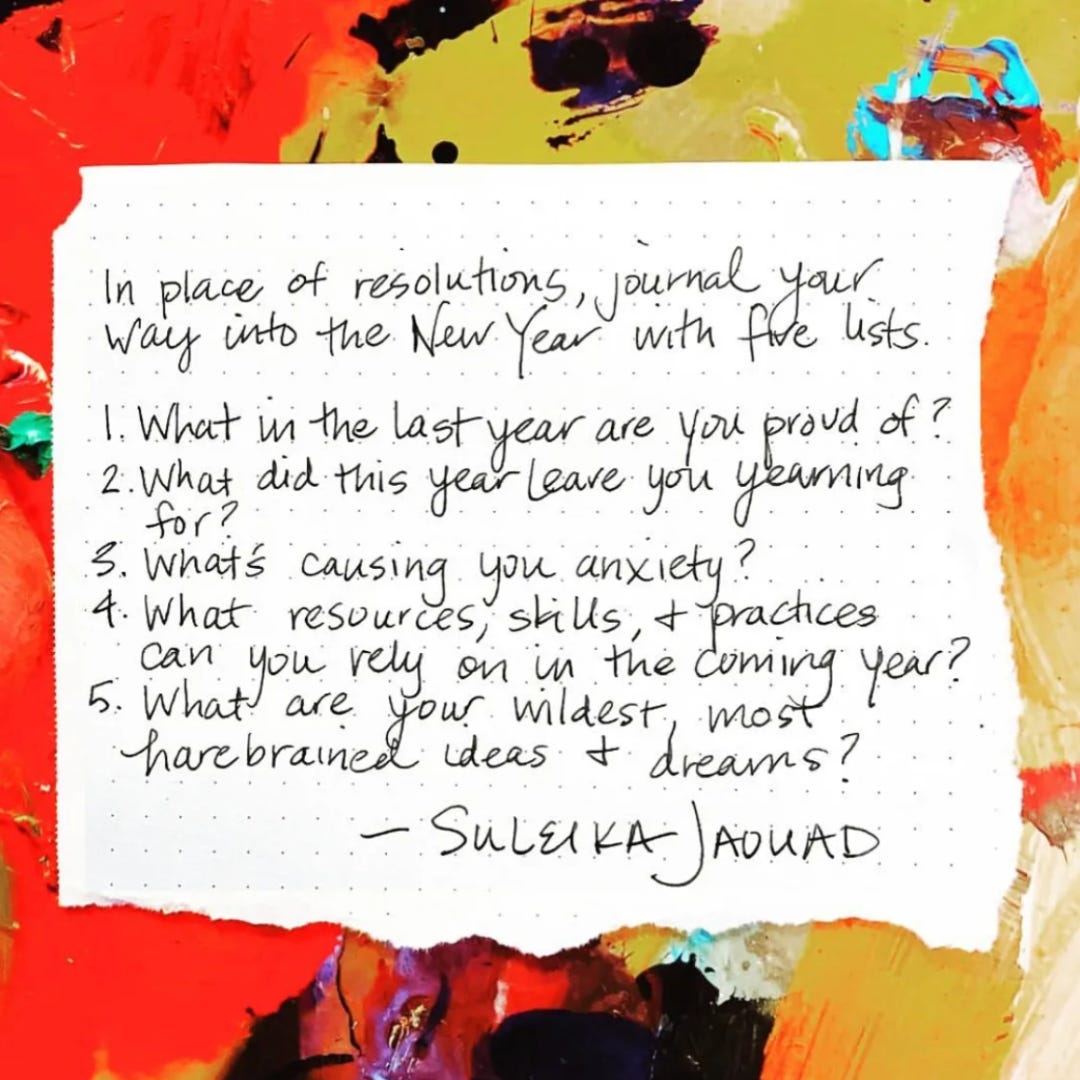 In place of resolutions, journal your
way into the New Year with five lists.
1. What in the last year are you proud of?
2. What did this year leave you yearning
for?
3. What's causing you anxiety?
4. What resources, skills, + practices
can you rely on in the coming year?
5. What are your wildest, most
harebrained ideas + dreams?
— SULEIKA JAOUAD